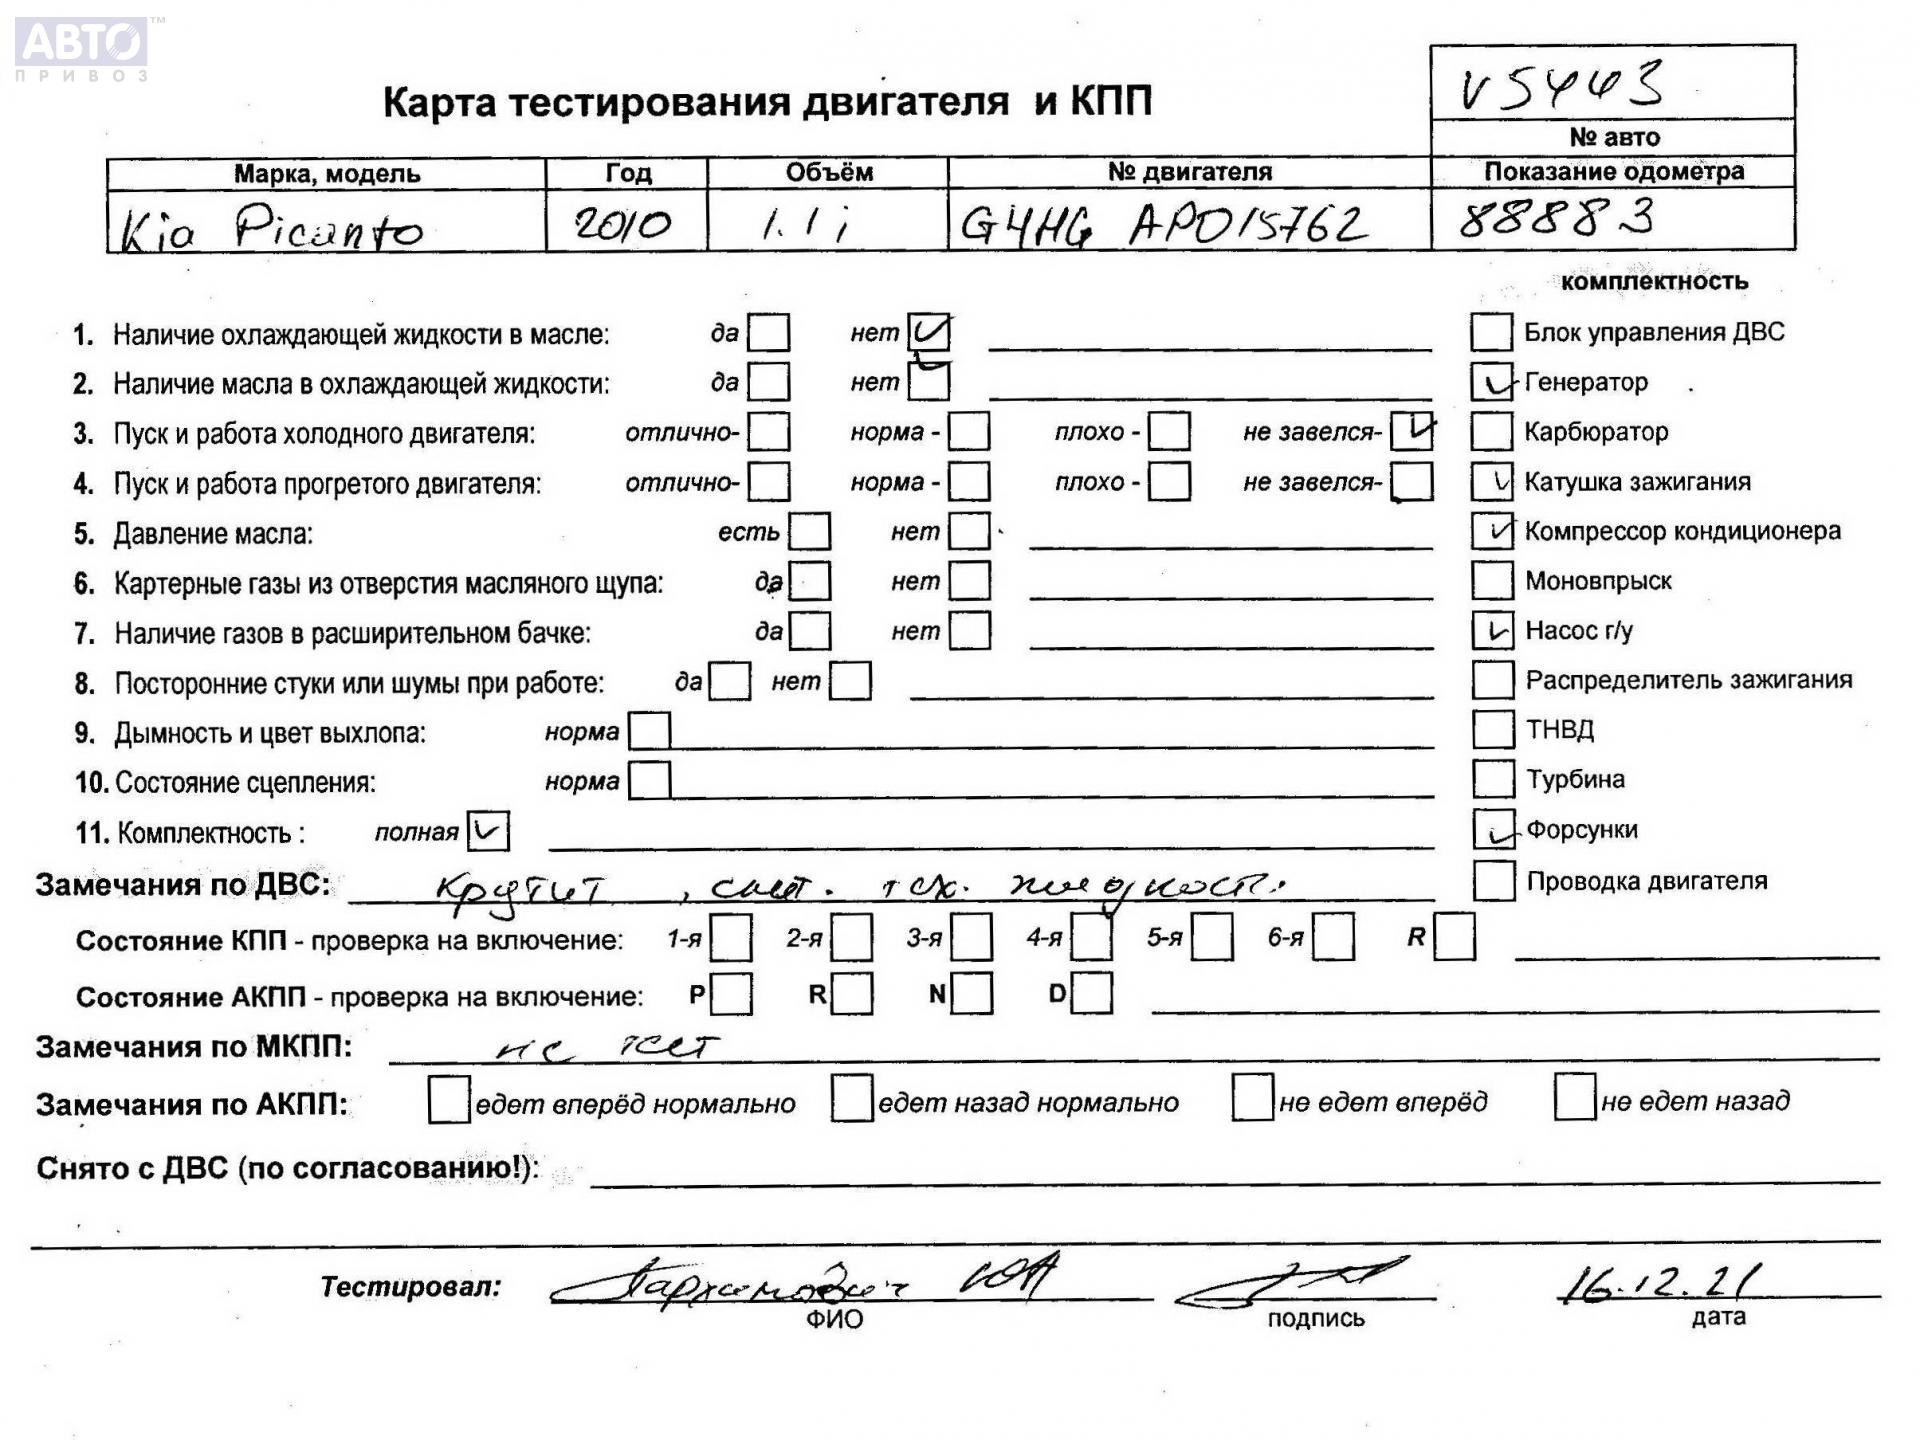 АВТО TM
ПРИВОЗ
Карта тестирования двигателя и КПП
V5443
№ авто
Марка, модель Год Объём № двигателя Показание одометра
Kia Picanto 2010 1.1 i G4HG AP015762 88883
комплектность
1. Наличие охлаждающей жидкости в масле: да нет Блок управления ДВС
2. Наличие масла в охлаждающей жидкости: да нет Генератор
3. Пуск и работа холодного двигателя: отлично- норма - плохо - не завелся- Карбюратор
4. Пуск и работа прогретого двигателя: отлично- норма - плохо - не завелся- Катушка зажигания
5. Давление масла: есть нет Компрессор кондиционера
6. Картерные газы из отверстия масляного щупа: да нет Моновпрыск
7. Наличие газов в расширительном бачке: да нет Насос г/у
8. Посторонние стуки или шумы при работе: да нет Распределитель зажигания
9. Дымность и цвет выхлопа: норма ТНВД
10. Состояние сцепления: норма Турбина
11. Комплектность : полная Форсунки
Замечания по ДВС: крутит , тех. жидкости Проводка двигателя
Состояние КПП - проверка на включение: 1-я 2-я 3-я 4-я 5-я 6-я R
Состояние АКПП - проверка на включение: P R N D
Замечания по МКПП: не тест
Замечания по АКПП: едет вперёд нормально едет назад нормально не едет вперёд не едет назад
Снято с ДВС (по согласованию!):
Тестировал: Пархимович ЮА 16.12.21
ФИО подпись дата